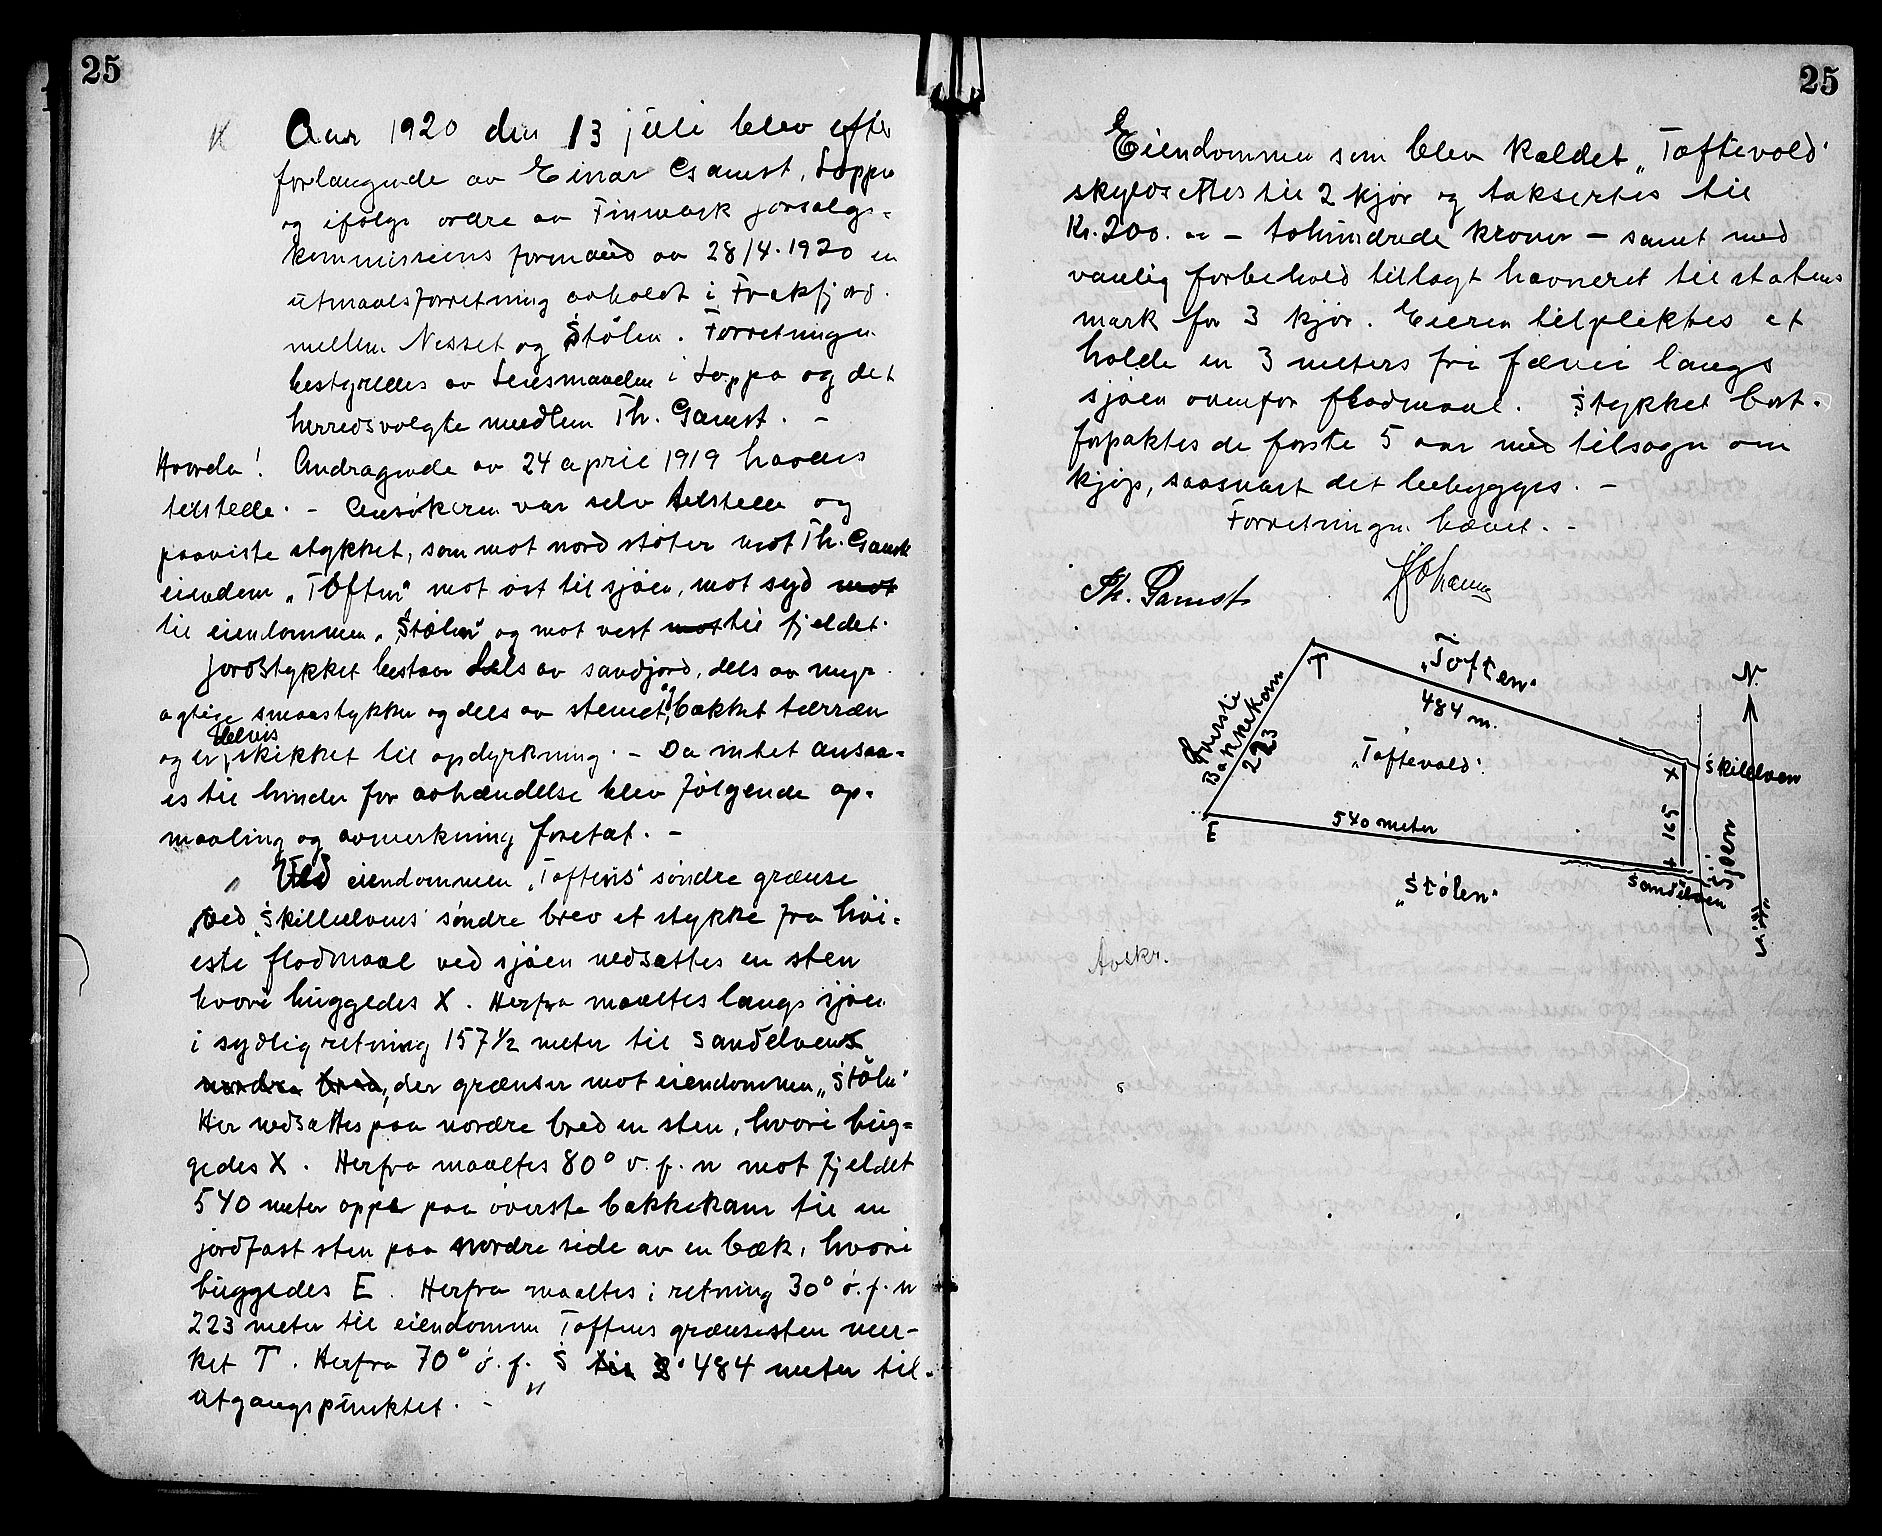 25
Aar 1920 den 13 juli blev efter
forlangende av Einar Gamst, Loppa
og ifølge ordre av Finmark jorsalgs-
kommissions formand av 28/4.1920 en
utmaalsforretning avholdt i Frakfjord.
mellem Nesset og Stølen. Forretningen
bestyredes av Lensmanden i Loppa og det
herredsvalgte medlem Th. Gamst. -
Hvorda! Andragende av 24 april 1919 havdes
tilstede. - Ansøkeren var selv tilstede og
paaviste stykket, som mot nord støter mot Th. Gamsts
eiendom "Toften" mot øst til sjøen, mot syd mot
til eiendommen "Stølen" og mot vest mot til fjeldet.
Jordstykket bestaar dels av sandjord, dels av myr-
agtige smaastykker og dels av stenet, bakket terræn
og er delvis skikket til opdyrkning. - Da intet ansaa-
es til hinder for avhændelse blev følgende op-
maaling og avmerkning foretat. -
Ved eiendommen "Toftens" søndre grænse
ved "Skillelvens" søndre bred et stykke fra høi-
este flodmaal ved sjøen nedsættes en sten
hvori huggedes X. Herfra maaltes langs sjøen
i sydlig retning 157 1/2 meter til Sandelvens
nordre bred, der grænser mot eiendommen "Stølen"
Her nedsattes paa nordre bred en sten, hvori hug-
gedes X. Herfra maaltes 80° v. f. n mot fjeldet
540 meter oppe paa øverste bakkekam til en
jordfast sten paa nordre side av en bæk, hvori
huggedes E. Herfra maaltes i retning 30° ø. f. n
223 meter til eiendommen Toftens grænsesten mer-
ket T. Herfra 70° ø. f. S til 484 meter til
utgangspunktet. -
25
Eiendommen som blev kaldet "Toftevold"
skyldsættes til 2 kjør og taksertes til
Kr. 200. - tohundrede kroner - samt med
vanlig forbehold tillagt havneret til statens
mark for 3 kjør. Eieren tilpliktes at
holde en 3 meters fri færvei langs
sjøen ovenfor flodmaal. Stykket bort-
forpaktes de første 5 aar med tilsagn om
kjøp, saasnart det bebygges. -
Forretningen hævet. -
Th. Gamst
"Toften"
N.
T
484 m.
Øverste
Bakkekam
223
"Toftevold"
X
Skillelven
165
540 meter
E
X
Sjøen
Sandelven
"Stølen"
Avskr.